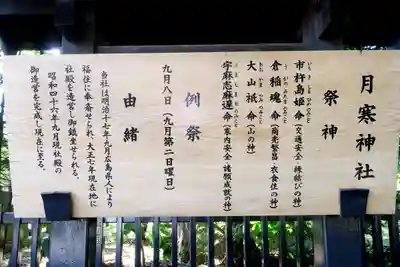 月寒神社
祭神
市杵島姫命(交通安全・縁結びの神)
倉稲魂命(商売繁昌・衣食住の神)
大山祇命(山の神)
宇麻志麻遅命(家内安全・諸願成就の神)
例祭
九月八日(九月第二日曜日)
由緒
当社は明治十七年九月広島県人により
福住に奉斎せられ、大正七年現在地に
社殿を造営し御鎮坐せられる。
昭和四十六年九月現社殿の
御造営を完成し現在に至る。